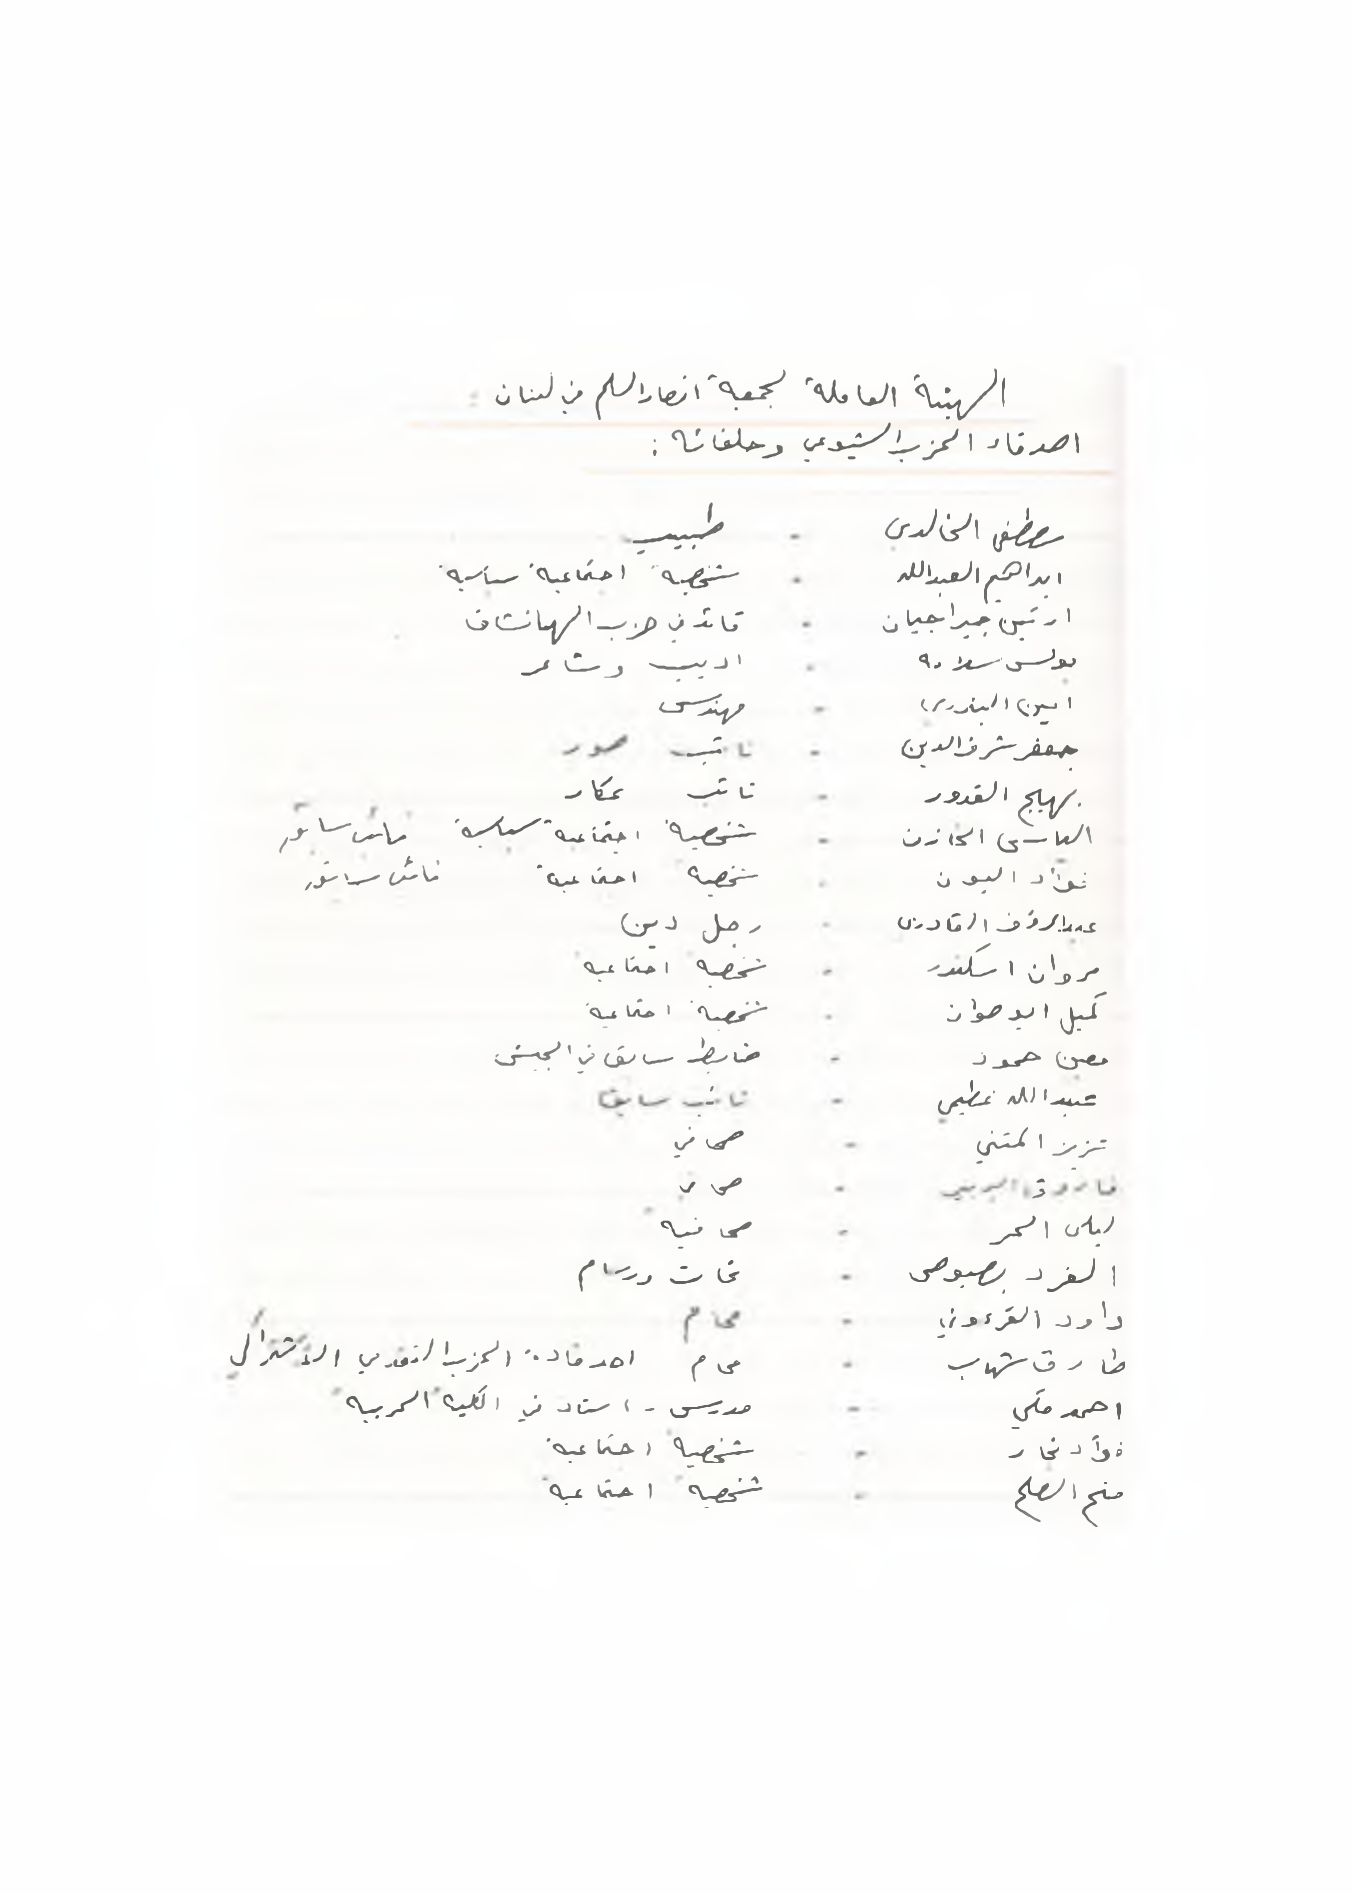 الهيئة العاملة لجمعية انصار السلم في لبنان :
اصدقاء الحزب الشيوعي وحلفائه :
مصطفى الخالدي - طبيب
ابراهيم العبدالله - شخصية اجتماعية سياسية
ارتين جيراجيان - قائد في حزب الهانشاق
بولس سلامه - اديب وشاعر
امين البندري - مهندس
جعفر شرف الدين - نائب صور
بهيج القدور - نائب عكار
الماسي الخازن - شخصية اجتماعية سياسية نائب سابق
فؤاد البون - شخصية اجتماعية نائب سابق
عبدالرؤف القادري - رجل دين
مروان اسكندر - شخصية اجتماعية
كميل ابو صوان - شخصية اجتماعية
معين حمود - ضابط سابق في الجيش
عبدالله غطيمي - نائب سابقا
عزيز المتني - صحافي
فاروق البربير - صحافي
ليلى الحر - صحافية
الفرد بصبوص - نحات ورسام
داود القرعوني - محام
طارق شهاب - محام احد قادة الحزب التقدمي الاشتراكي
احمد مكي - مدرس - استاذ في الكلية الحربية
فؤاد نجار - شخصية اجتماعية
منح الصلح - شخصية اجتماعية